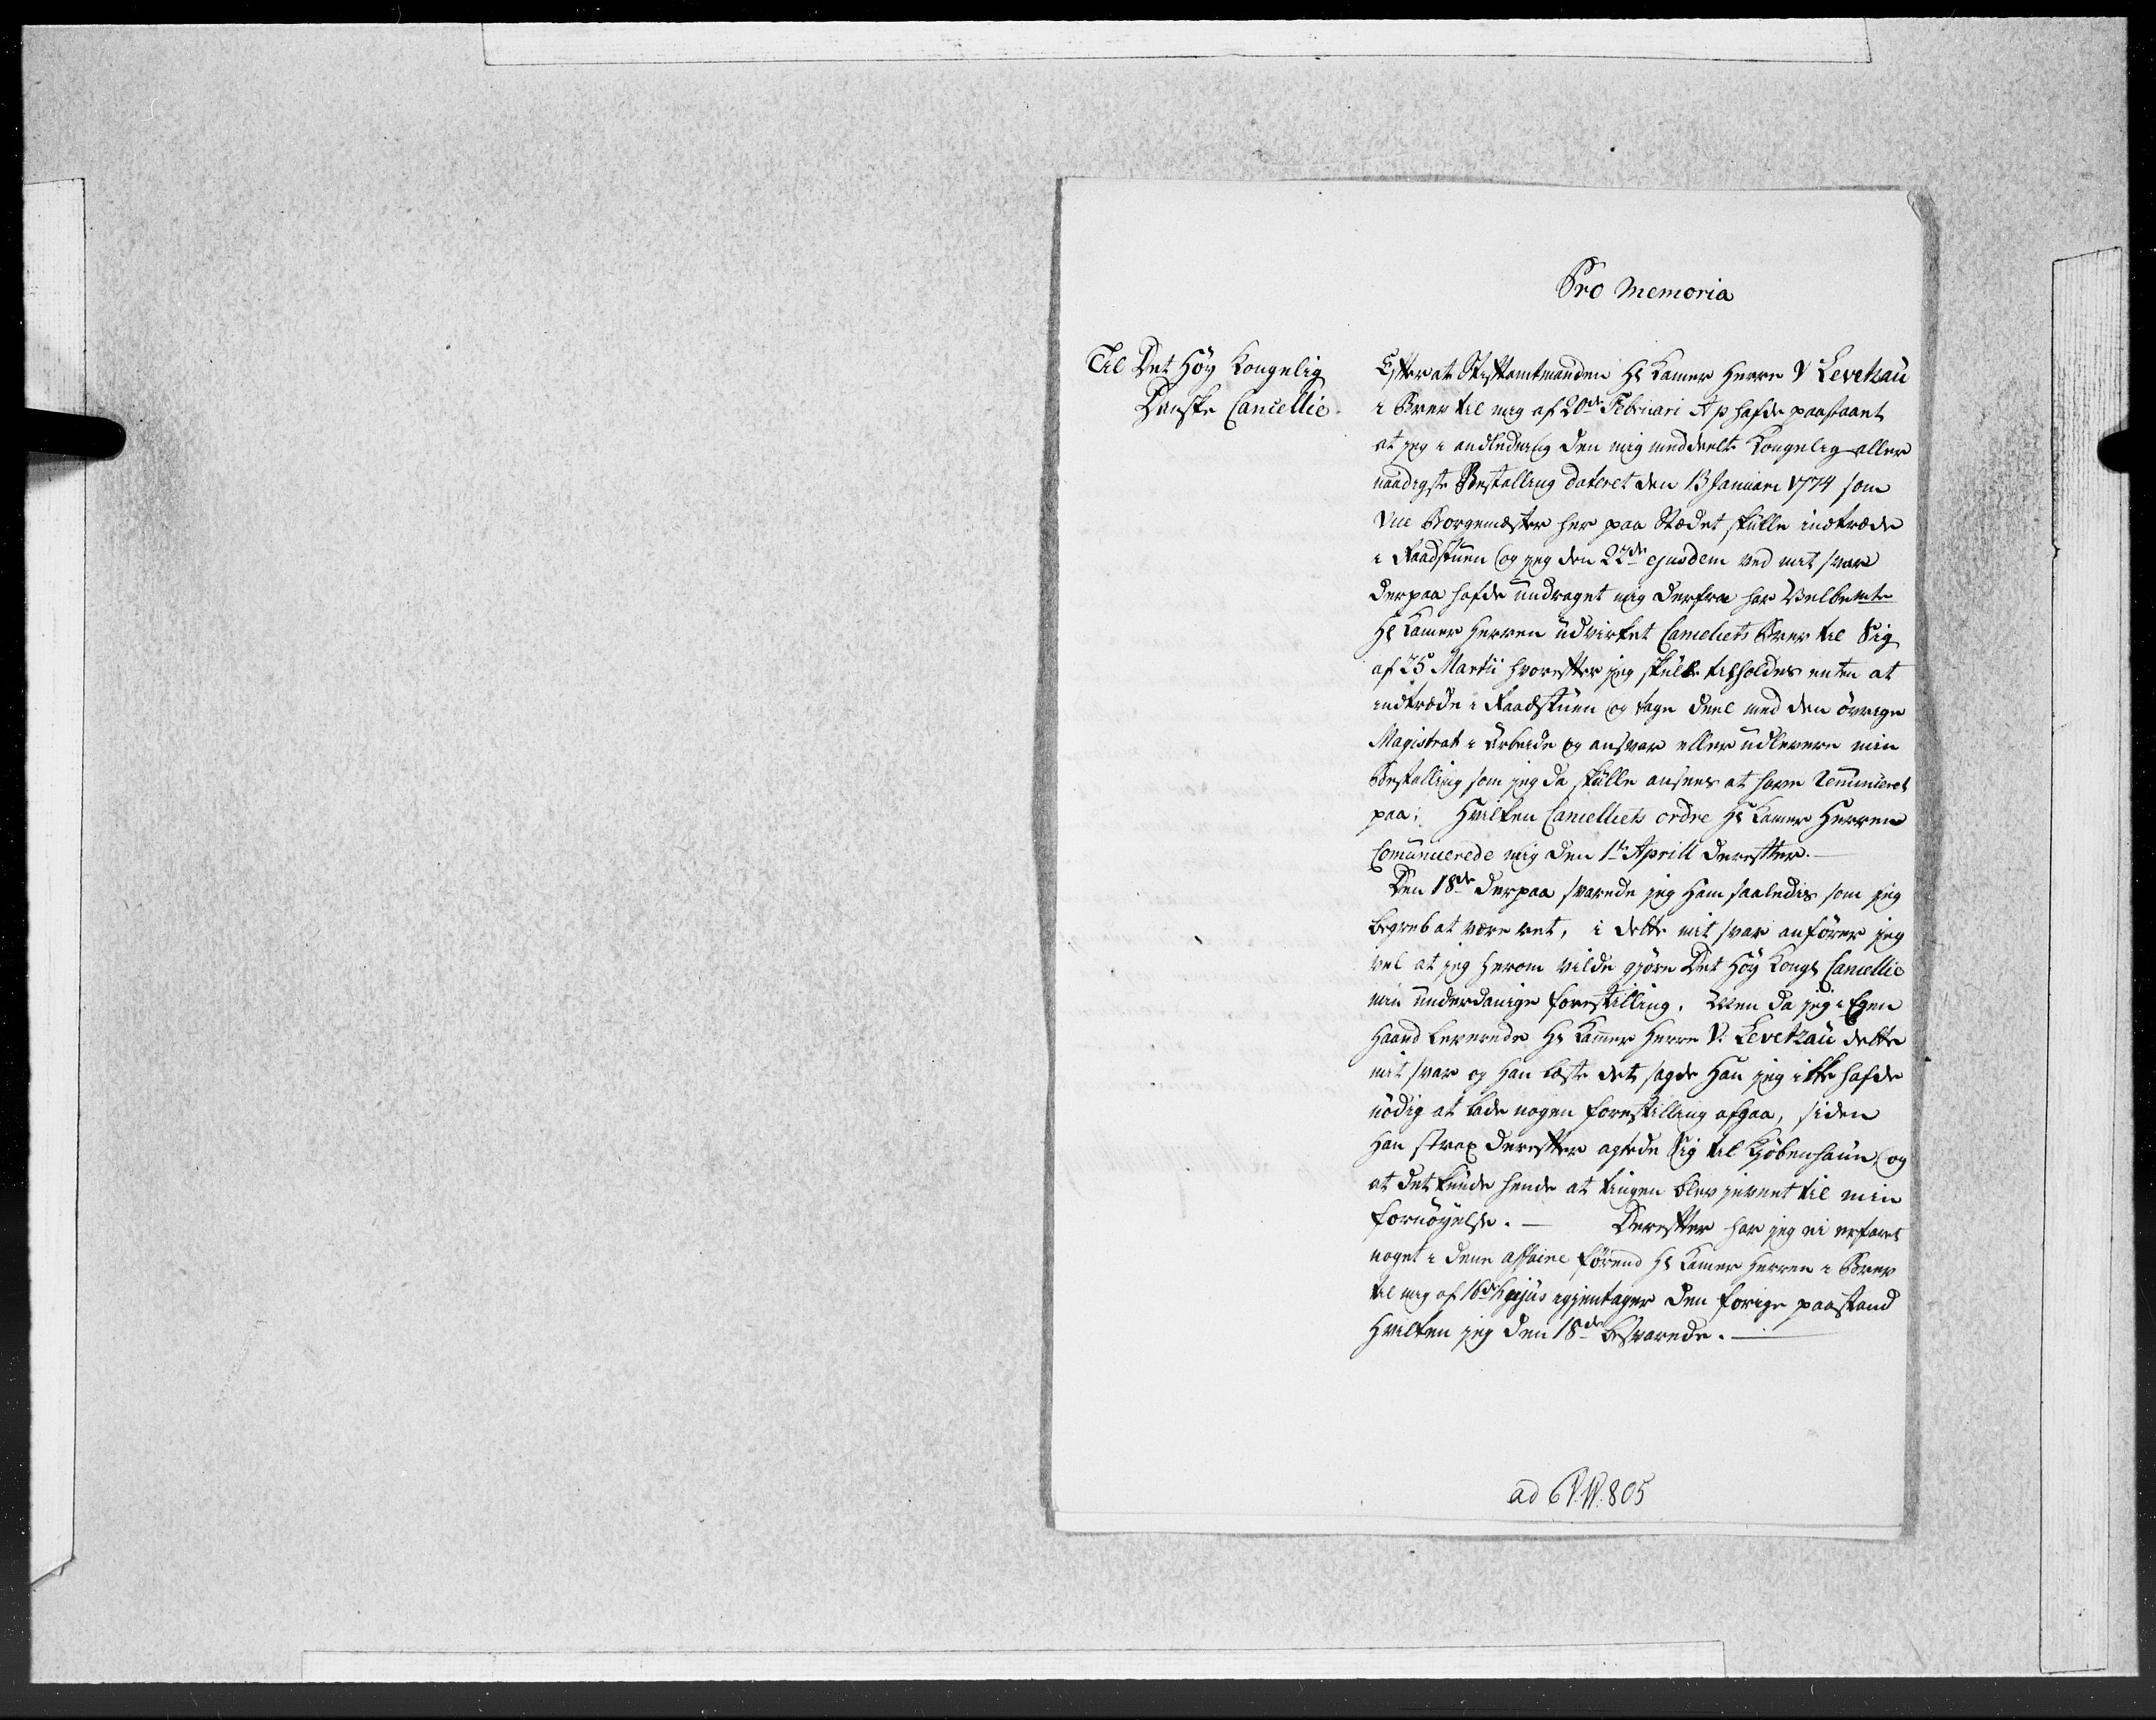 Pro Memoria
Til Det Høy Kongelig
Danske Cancellie.
Efter at Stiftamtmanden Hr Kamer Herre V Levetzau
i Brev til mig af 20de Februari A p hafde paastaaet
at jeg i andledning den mig meddeelte Kongelig aller
naadigste Bestalling dateret den 13 Januari 1774 som
Vice Borgemester her paa Stædet skulle indtræde
i Raadstuen og jeg den 22de ejusdem ved mit svar
derpaa hafde undraget mig derfra har Velbemte
Hr Kamer Herren udvirket Canceliets Brev til Sig
af 25 Martii hvorefter jeg skulle tilholdes enten at
indtræde i Raadstuen og tage deel med den øvrige
Magistrat i Arbeide og ansvar eller udlevere min
Bestalling som jeg da skulle ansees at have Renunceret
paa; Hvilken Cancelliets ordre Hr Kamer Herren
Comunicerede mig den 1te Aprill derefter.
Den 18de derpaa svarede jeg Ham saaledis som jeg
begreb at være ret, i dette mit svar anfører jeg
vel at jeg herom vilde giøre Det Høy Kongl Cancellie
min underdanige forestilling. Men da jeg i Egen
Haand leverede Hr Kamer Herre V. Levetzau dette
mit svar og Han læste det sagde Han jeg ikke hafde
nødig at lade nogen forestilling afgaa, siden
Han strax derefter agtede Sig til Kjøbenhaun, og
at det kunde hende at tingen blev jevnet til min
fornøyelse. — Derefter har jeg ei erfaret
noget i dene affaire førend Hr Kamer Herren i Brev
til mig af 16de hujus igjentager den forige paastand
Hvilken jeg den 18de besvarede. —
ad 805